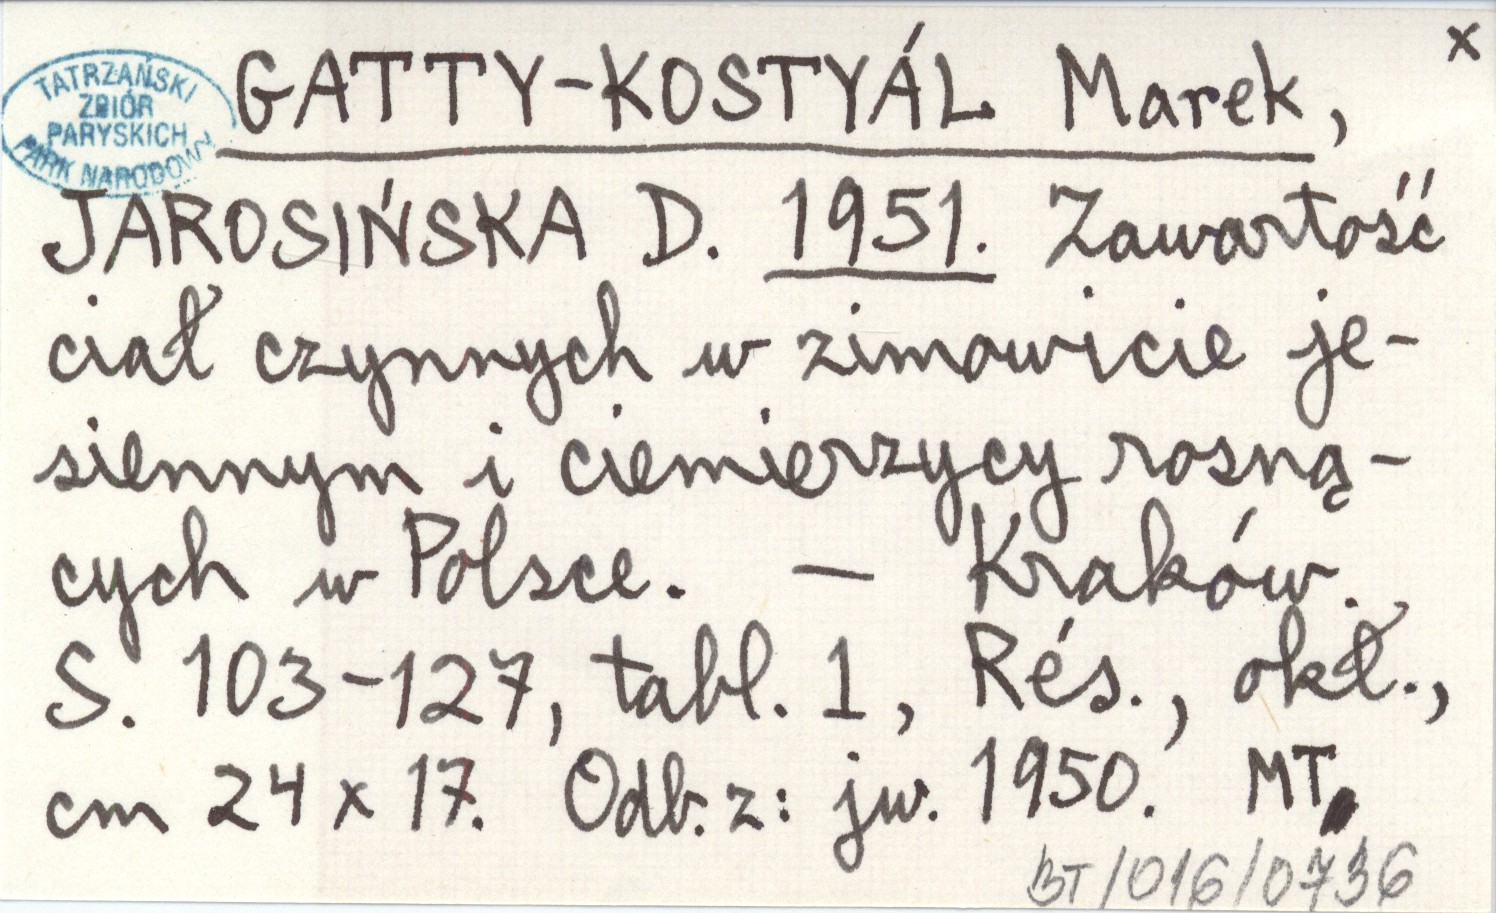 x
TATRZAŃSKI
ZBIÓR
PARYSKICH
PARK NARODOWY
GATTY-KOSTYÁL Marek,
JAROSIŃSKA D. 1951. Zawartość
ciał czynnych w zimowicie je-
siennym i ciemierzycy rosną-
cych w Polsce. — Kraków.
S. 103-127, tabl. 1, Rés., okł.,
cm 24 x 17. Odb. z: jw. 1950. MT
BT/016/0736